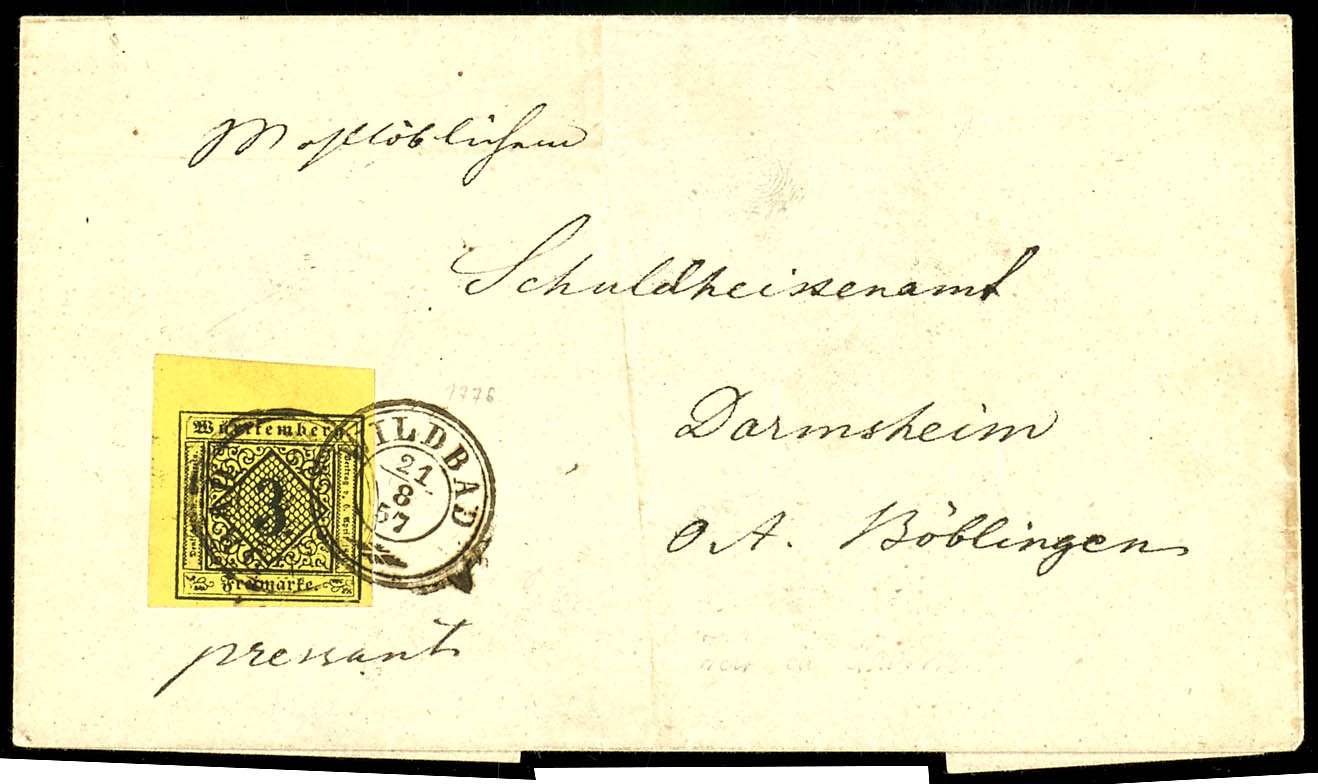 Wohllöblichem
Schuldheissenamt
1776
Württemberg
3
Freimarke.
WILDBAD
21
8
57
Darmsheim
O. A. Böblingen
pressant